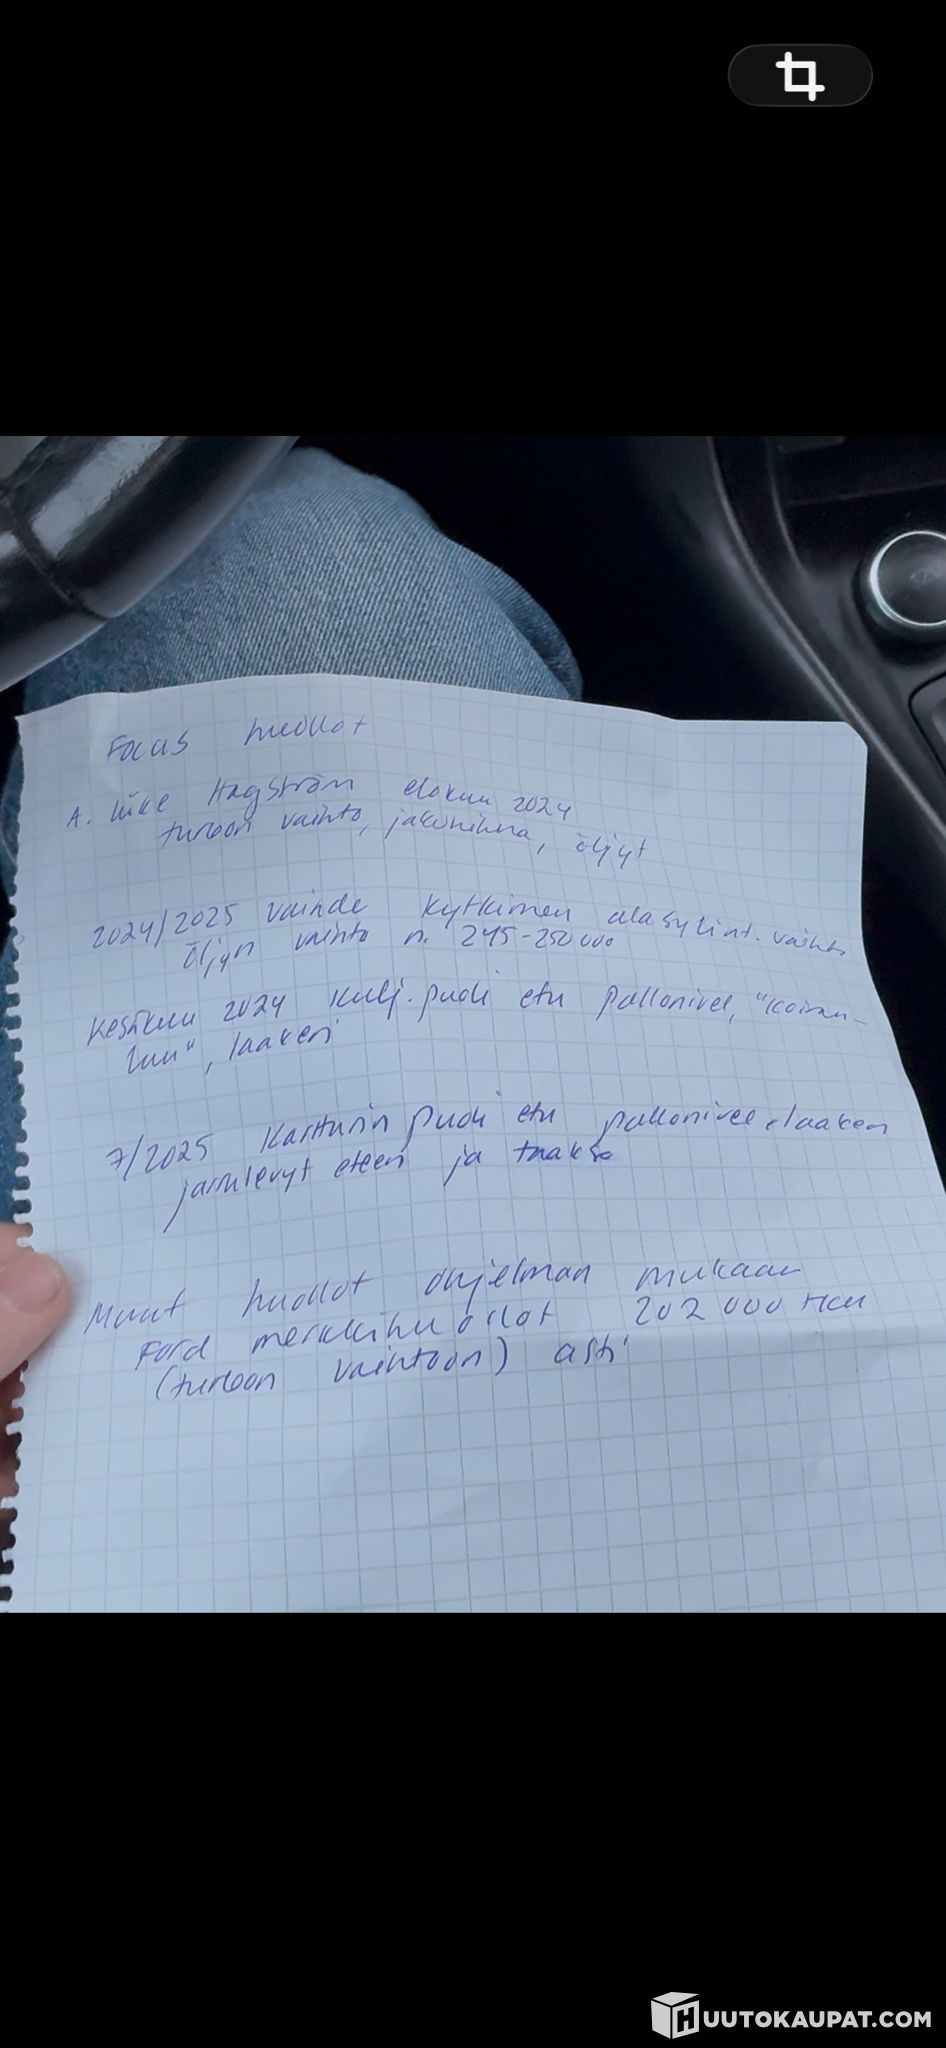 Focus huollot
A. Liike Hagström elokuu 2024
turbon vaihto, jakohihna, öljyt
2024/2025 vaihde kytkimen alasylint. vaihto
öljyn vaihto n. 245-250 000
Kesäkuu 2024 Kulj. puoli etu pallonivel, "koiran-
luu", laakeri
7/2025 Kartturin puoli etu pallonivel, laakeri
jarrulevyt eteen ja taakse
Muut huollot ohjelman mukaan
Ford merkkihuollot 202 000 tkm
(turbon vaihtoon) asti
HUUTOKAUPAT.COM